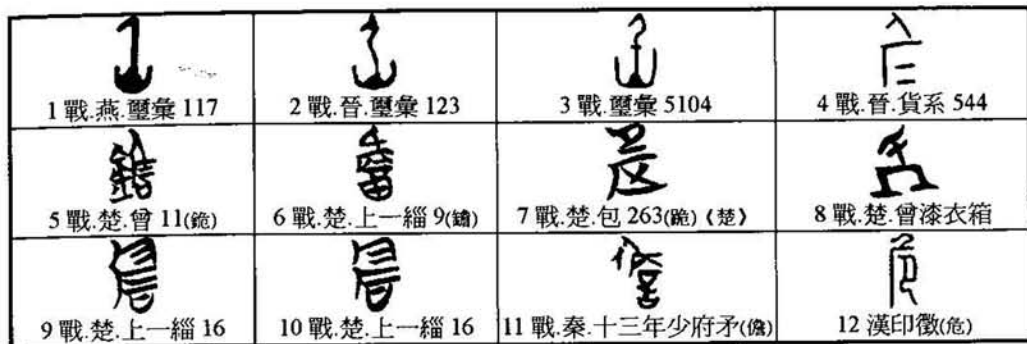 1 戰.燕.璽彙 117
2 戰.晉.璽彙 123
3 戰.璽彙 5104
4 戰.晉.貨系 544
5 戰.楚.曾 11(銫)
6 戰.楚.上一緇 9(䥥)
7 戰.楚.包 263(跪)《楚》
8 戰.楚.曾漆衣箱
9 戰.楚.上一緇 16
10 戰.楚.上一緇 16
11 戰.秦.十三年少府矛(儋)
12 漢印徵(危)